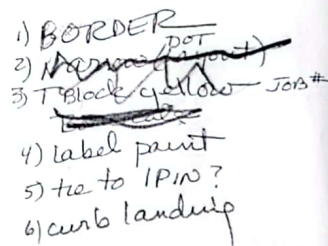 1) BORDER
DOT
2) Narrow (
3) T Block yellow JOB #
4) label paint
5) tie to IPIN?
6) curb landing